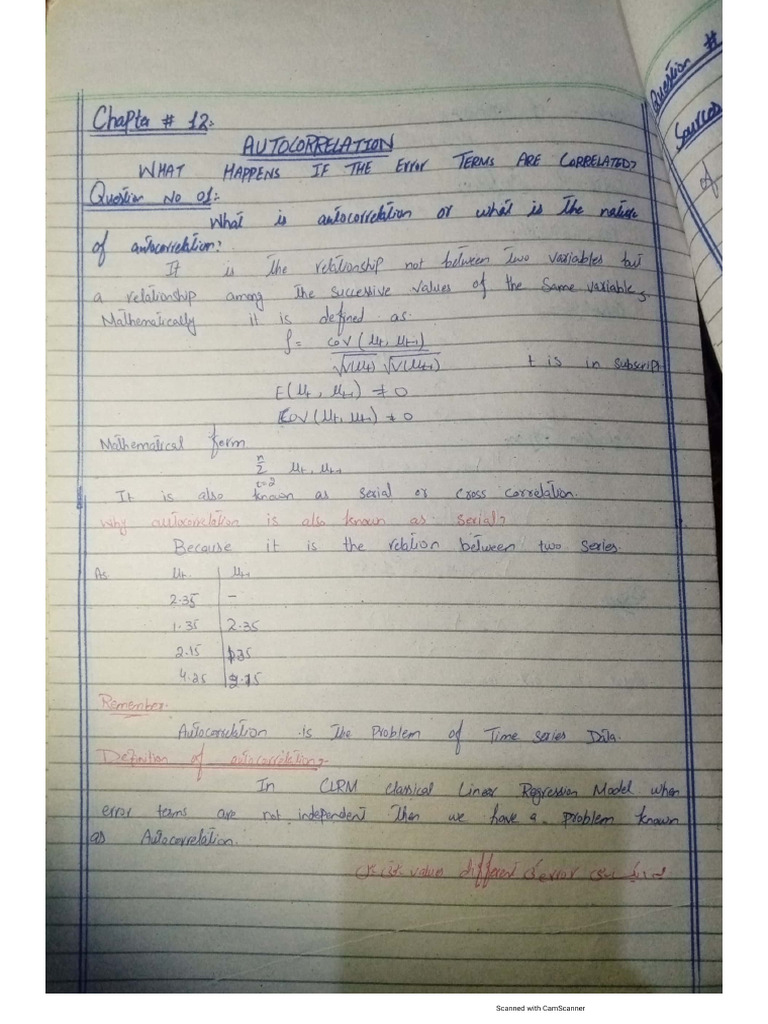 Chapter # 12:
AUTOCORRELATION
WHAT HAPPENS IF THE Error TERMS ARE CORRELATED?
Question No 01:
What is autocorrelation or what is the nature
of autocorrelation?
It is the relationship not between two variables but
a relationship among the successive values of the same variable,
Mathematically it is defined as:
ρ = cov(μt, μt-1)
√V(μt) √V(μt-1)
t is in subscript
E(μt, μt-1) ≠ 0
Cov(μt, μt-1) ≠ 0
Mathematical form
n
Σ μt, μt-1
t=2
It is also known as serial or cross correlation.
Why autocorrelation is also known as serial?
Because it is the relation between two series.
As μt μt-1
2.35 –
1.35 2.35
2.15 1.35
4.25 2.15
Remember:
Autocorrelation is the problem of Time series Data.
Definition of autocorrelation:-
In CLRM Classical Linear Regression Model when
error terms are not independent then we have a problem known
as Autocorrelation.
error کی different value
Question #
Sources
of
Scanned with CamScanner